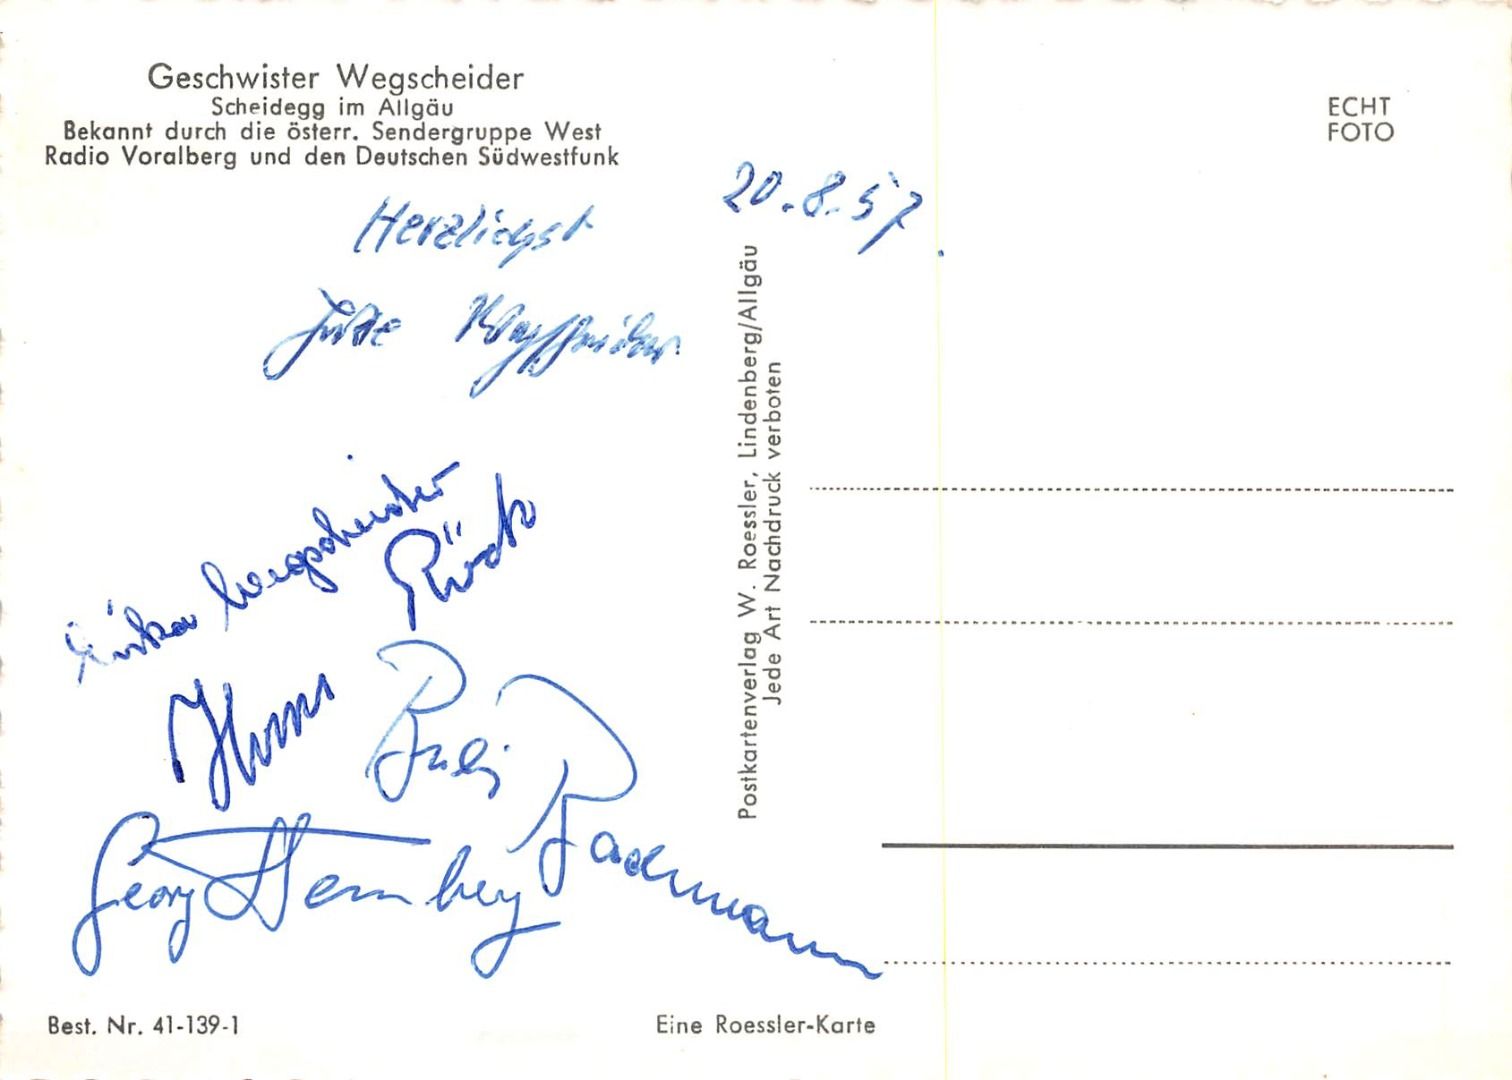 Geschwister Wegscheider
Scheidegg im Allgäu
Bekannt durch die österr. Sendergruppe West
Radio Voralberg und den Deutschen Südwestfunk
ECHT
FOTO
20.8.57.
Herzlichst
Wegscheider
Wegscheider
Georg Sternberg
Bachmann
Postkartenverlag W. Roessler, Lindenberg/Allgäu
Jede Art Nachdruck verboten
Best. Nr. 41-139-1
Eine Roessler-Karte